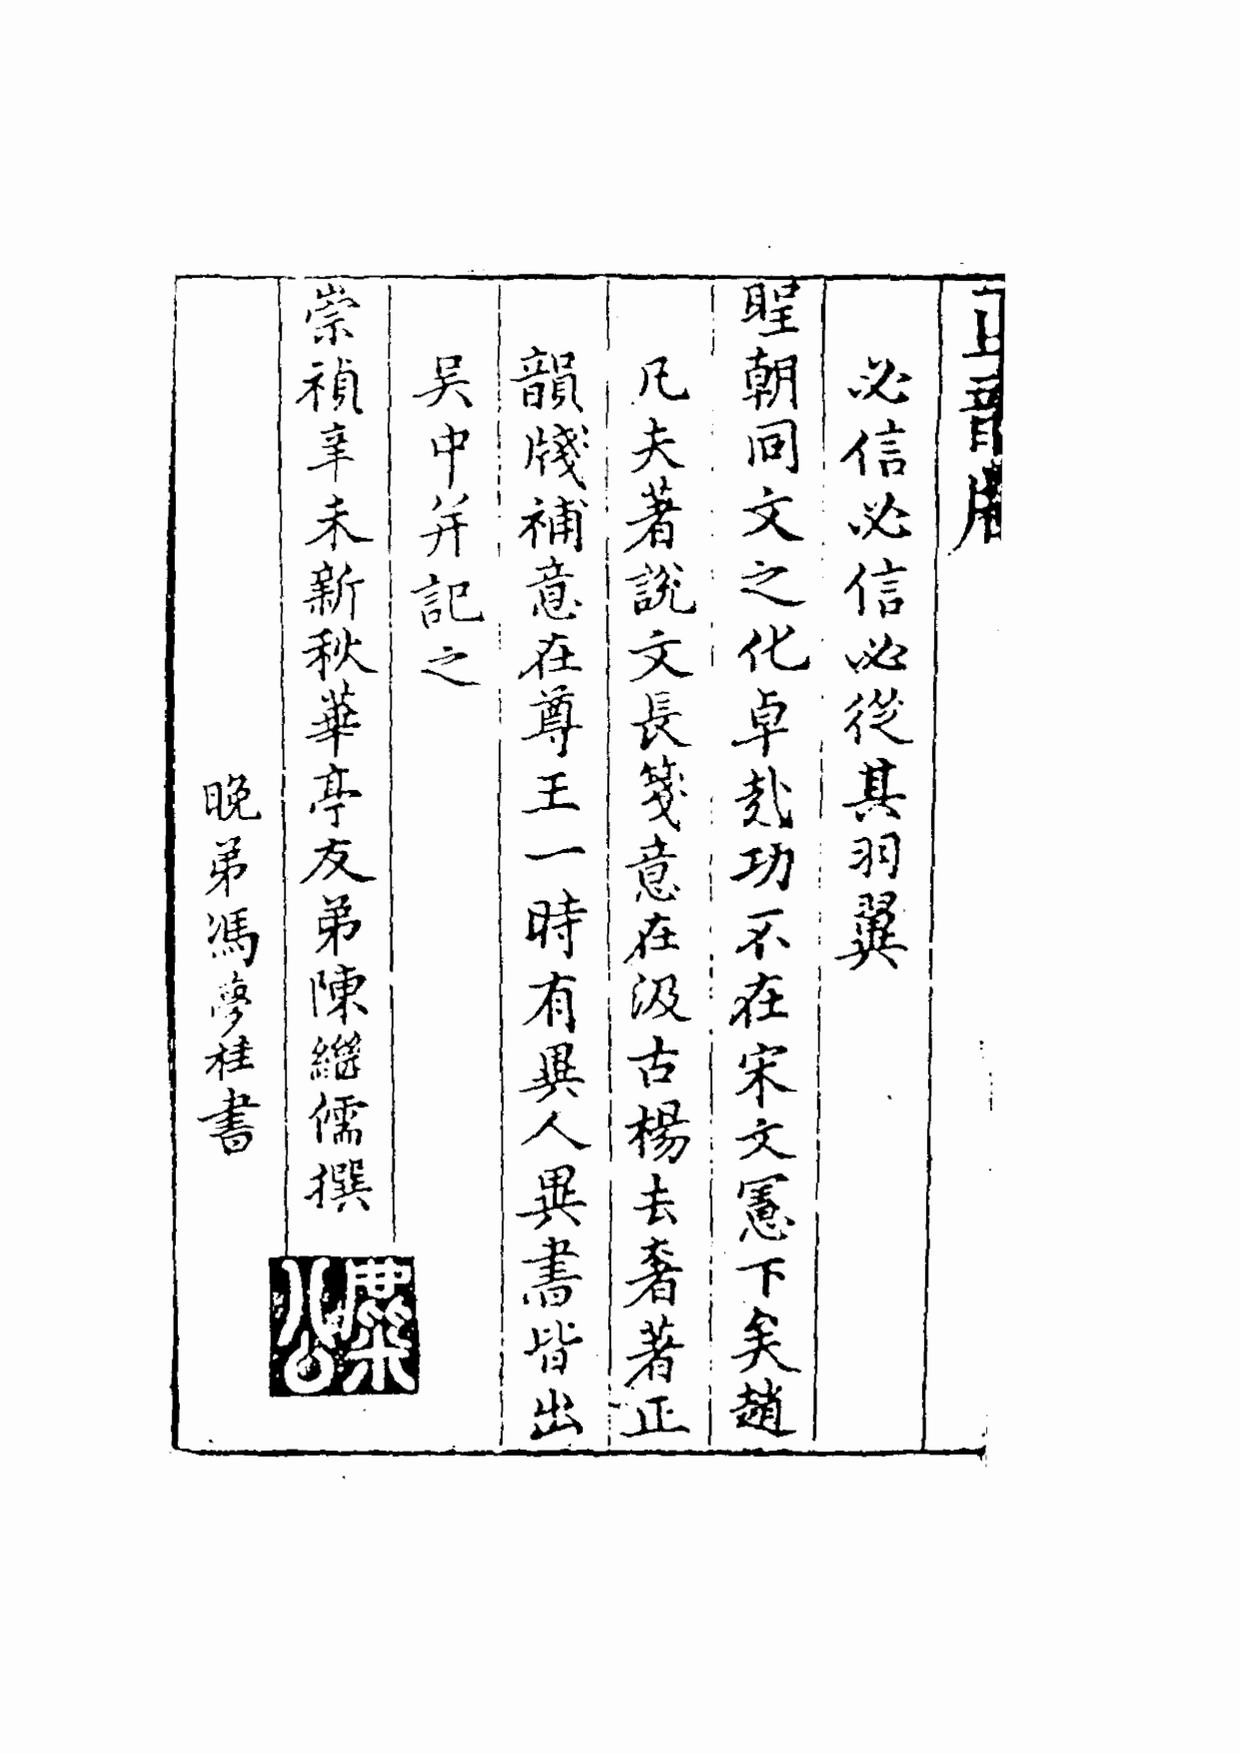 正韻牋
必信必信必從其羽翼
聖朝同文之化卓哉功不在宋文憲下矣趙
凡夫著說文長箋意在汲古楊去奢著正
韻牋補意在尊王一時有異人異書皆出
吳中并記之
崇禎辛未新秋華亭友弟陳繼儒撰
晚弟馮夢桂書
麋公